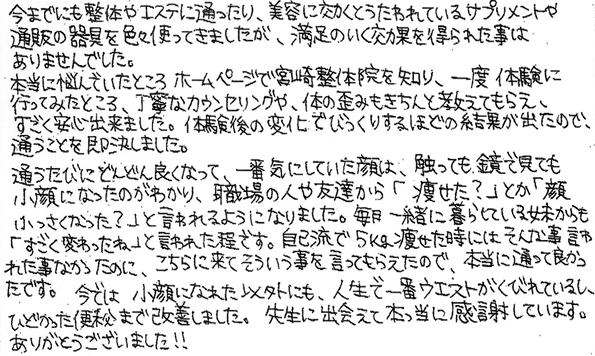 今までにも整体やエステに通ったり、美容に効くとうたわれているサプリメントや
通販の器具を色々使ってきましたが、満足のいく効果を得られた事は
ありませんでした。
本当に悩んでいたところ ホームページで宮崎整体院を知り、一度 体験に
行ってみたところ、丁寧なカウンセリングや、体の歪みもきちんと教えてもらえ、
すごく安心出来ました。体験後の変化でびっくりするほどの結果が出たので、
通うことを即決しました。
通うたびにどんどん良くなって、一番気にしていた顔は、触っても鏡で見ても
小顔になったのがわかり、職場の人や友達から「痩せた?」とか「顔
小っさくなった?」と言われるようになりました。毎日一緒に暮らしている妹からも
「すごく変わったね」と言われた程です。自己流で5kg痩せた時にはそんな事言わ
れた事なかったのに、こちらに来てそういう事を言ってもらえたので、本当に通って良かっ
たです。 今では 小顔になれた以外にも、人生で一番ウエストがくびれているし、
ひどかった便秘まで改善しました。 先生に出会えて本当に感謝しています。
ありがとうございました!!